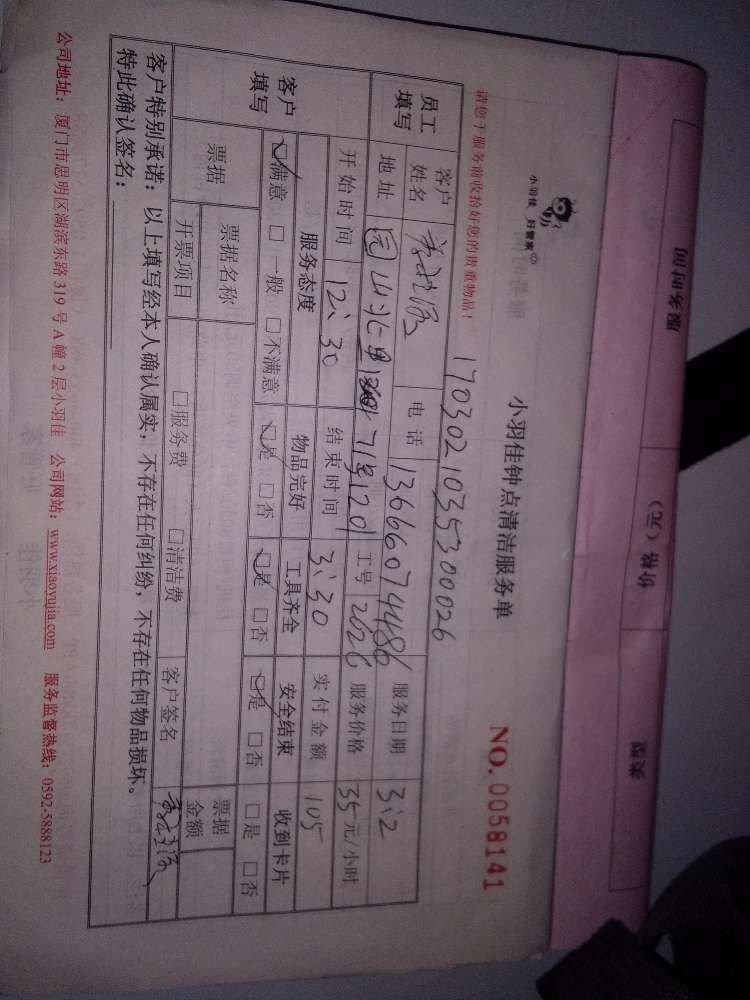 小羽佳 好管家
小羽佳钟点清洁服务单
NO.0058141
170302103533000026
请您于服务前收拾好您的贵重物品！
员工填写 客户姓名 电话 13666074486 服务日期 3:2
地址 园山北里 71号1201 工号 2026 服务价格 35元/小时
客户填写 开始时间 12:30 结束时间 3:30 实付金额 105
服务态度 物品完好 工具齐全 安全结束 收到卡片
☑满意 □一般 □不满意 ☑是 □否 ☑是 □否 ☑是 □否 □是 □否
票据 票据名称 票据金额
开票项目 □服务费 □清洁费 客户签名
客户特别承诺：以上填写经本人确认属实，不存在任何纠纷，不存在任何物品损坏。
特此确认签名：
公司地址：厦门市思明区湖滨东路319号A幢2层小羽佳 公司网站：www.xiaoyujia.com 服务监督热线：0592-5888123